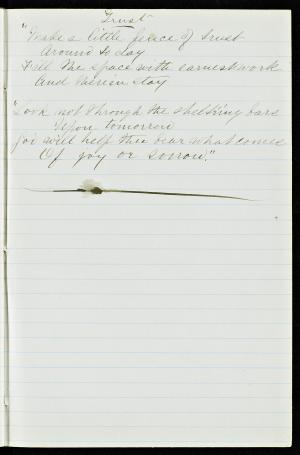 Trust
"Make a little of trust
Around to day
Fill the space with earnest work
And therein stay
"Look not through the shelt'ring bars
Upon tomorrow
God will help thee bear what comes
Of joy or sorrow."